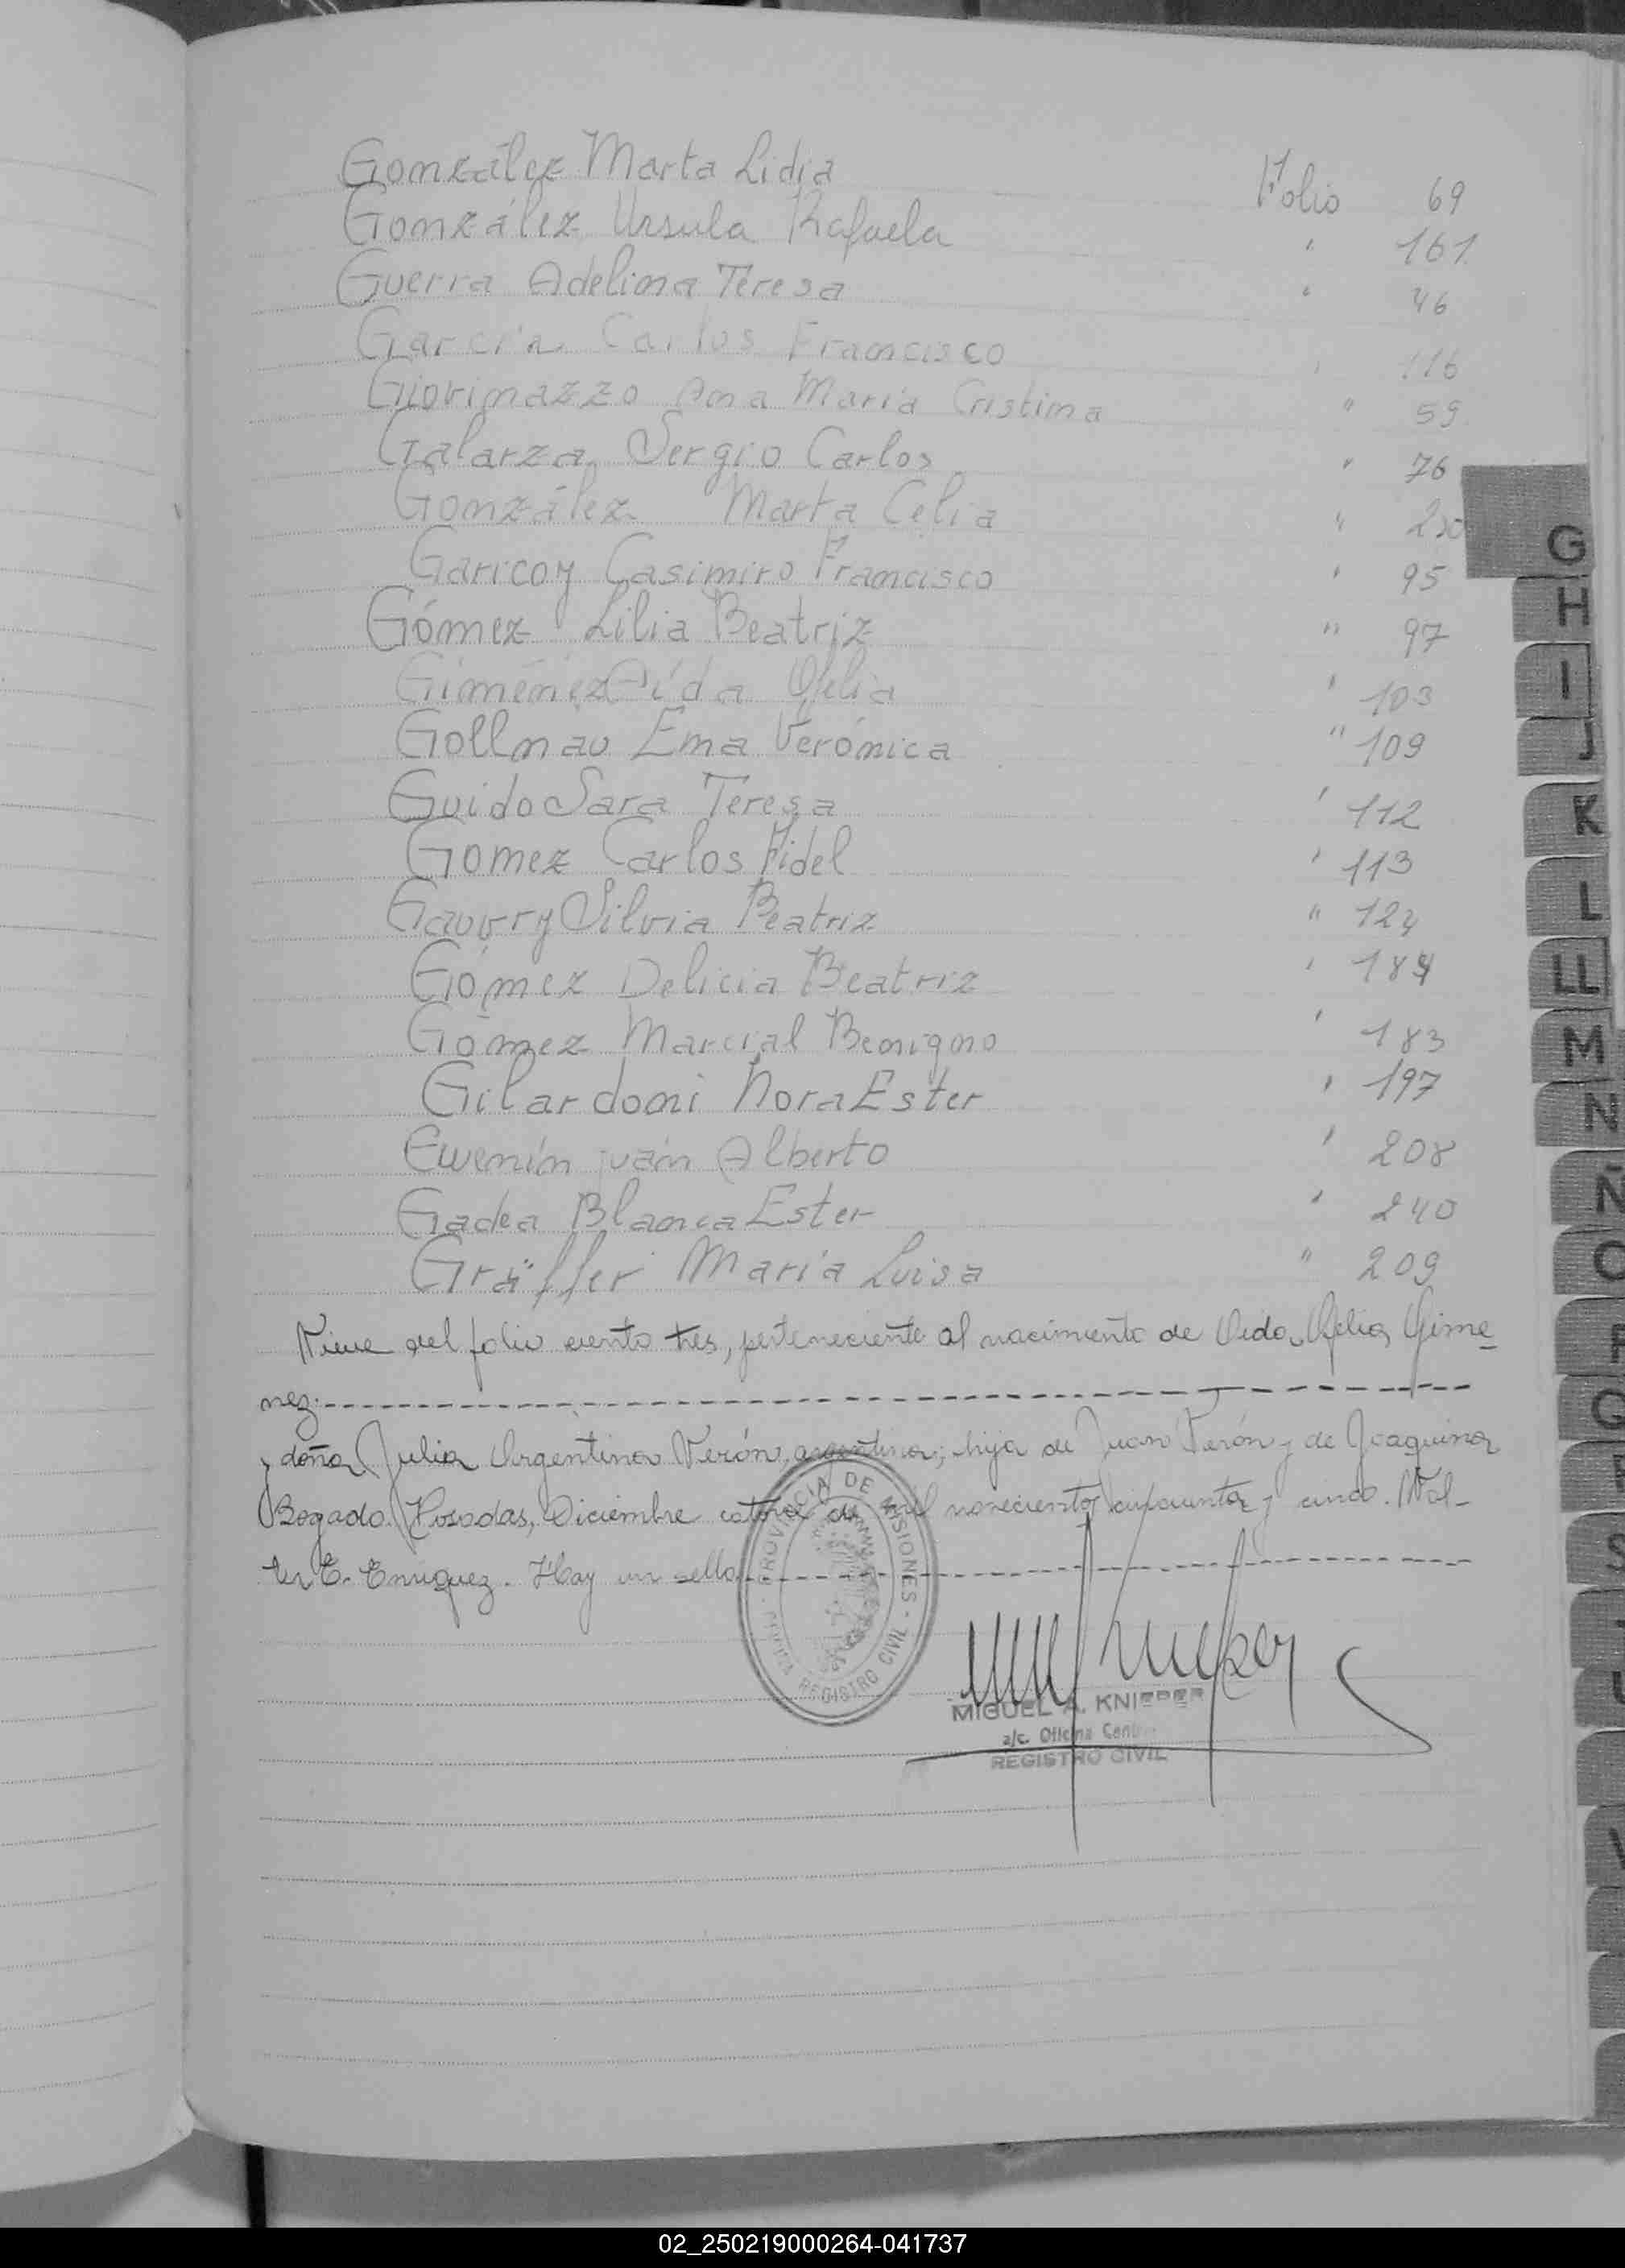 González Marta Lidia Folio 69
González Ursula Rafaela " 161
Guerra Adelima Teresa " 46
García Carlos Francisco " 116
Giovinazzo Ana María Cristina " 59
Galarza Sergio Carlos " 76
González Marta Celia "
Garicoy Casimiro Francisco " 95
Gómez Lilia Beatriz " 97
Gimenez Aída Ofelia " 103
Gollnau Ema Verónica " 109
Guido Sara Teresa " 112
Gomez Carlos Fidel " 113
Gauvry Silvia Beatriz " 124
Gómez Delicia Beatriz " 184
Gómez Marcial Benigno " 183
Gilardoni Nora Ester " 197
Ewenín juán Alberto " 208
Gadea Blanca Ester " 240
Gräffer María Luisa " 209
Viene del folio ciento tres, perteneciente al nacimiento de Aida Ofelia Gime-
nez.-
y doña Julia Argentina Verón, argentina; hija de Juan Verón y de Joaquina
Bogado. Posadas, Diciembre catorce de mil novecientos cincuenta y cinco. Wal-
ter E. Enriquez. Hay un sello
PROVINCIA DE MISIONES
REGISTRO CIVIL
MIGUEL A. KNIEPER
a/c. Oficina Cent
REGISTRO CIVIL
G
H
I
J
K
L
LL
M
N
Ñ
O
P
Q
R
S
T
U
V
02_250219000264-041737